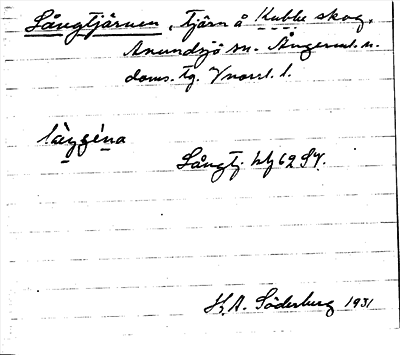 Långtjärnen, tjärn å Kubbe skog,
Anundsjö sn. Ångerml. n.
doms. tg. Vnorrl. l.
Långtj. bl 62 SV.
H. A. Söderberg 1931